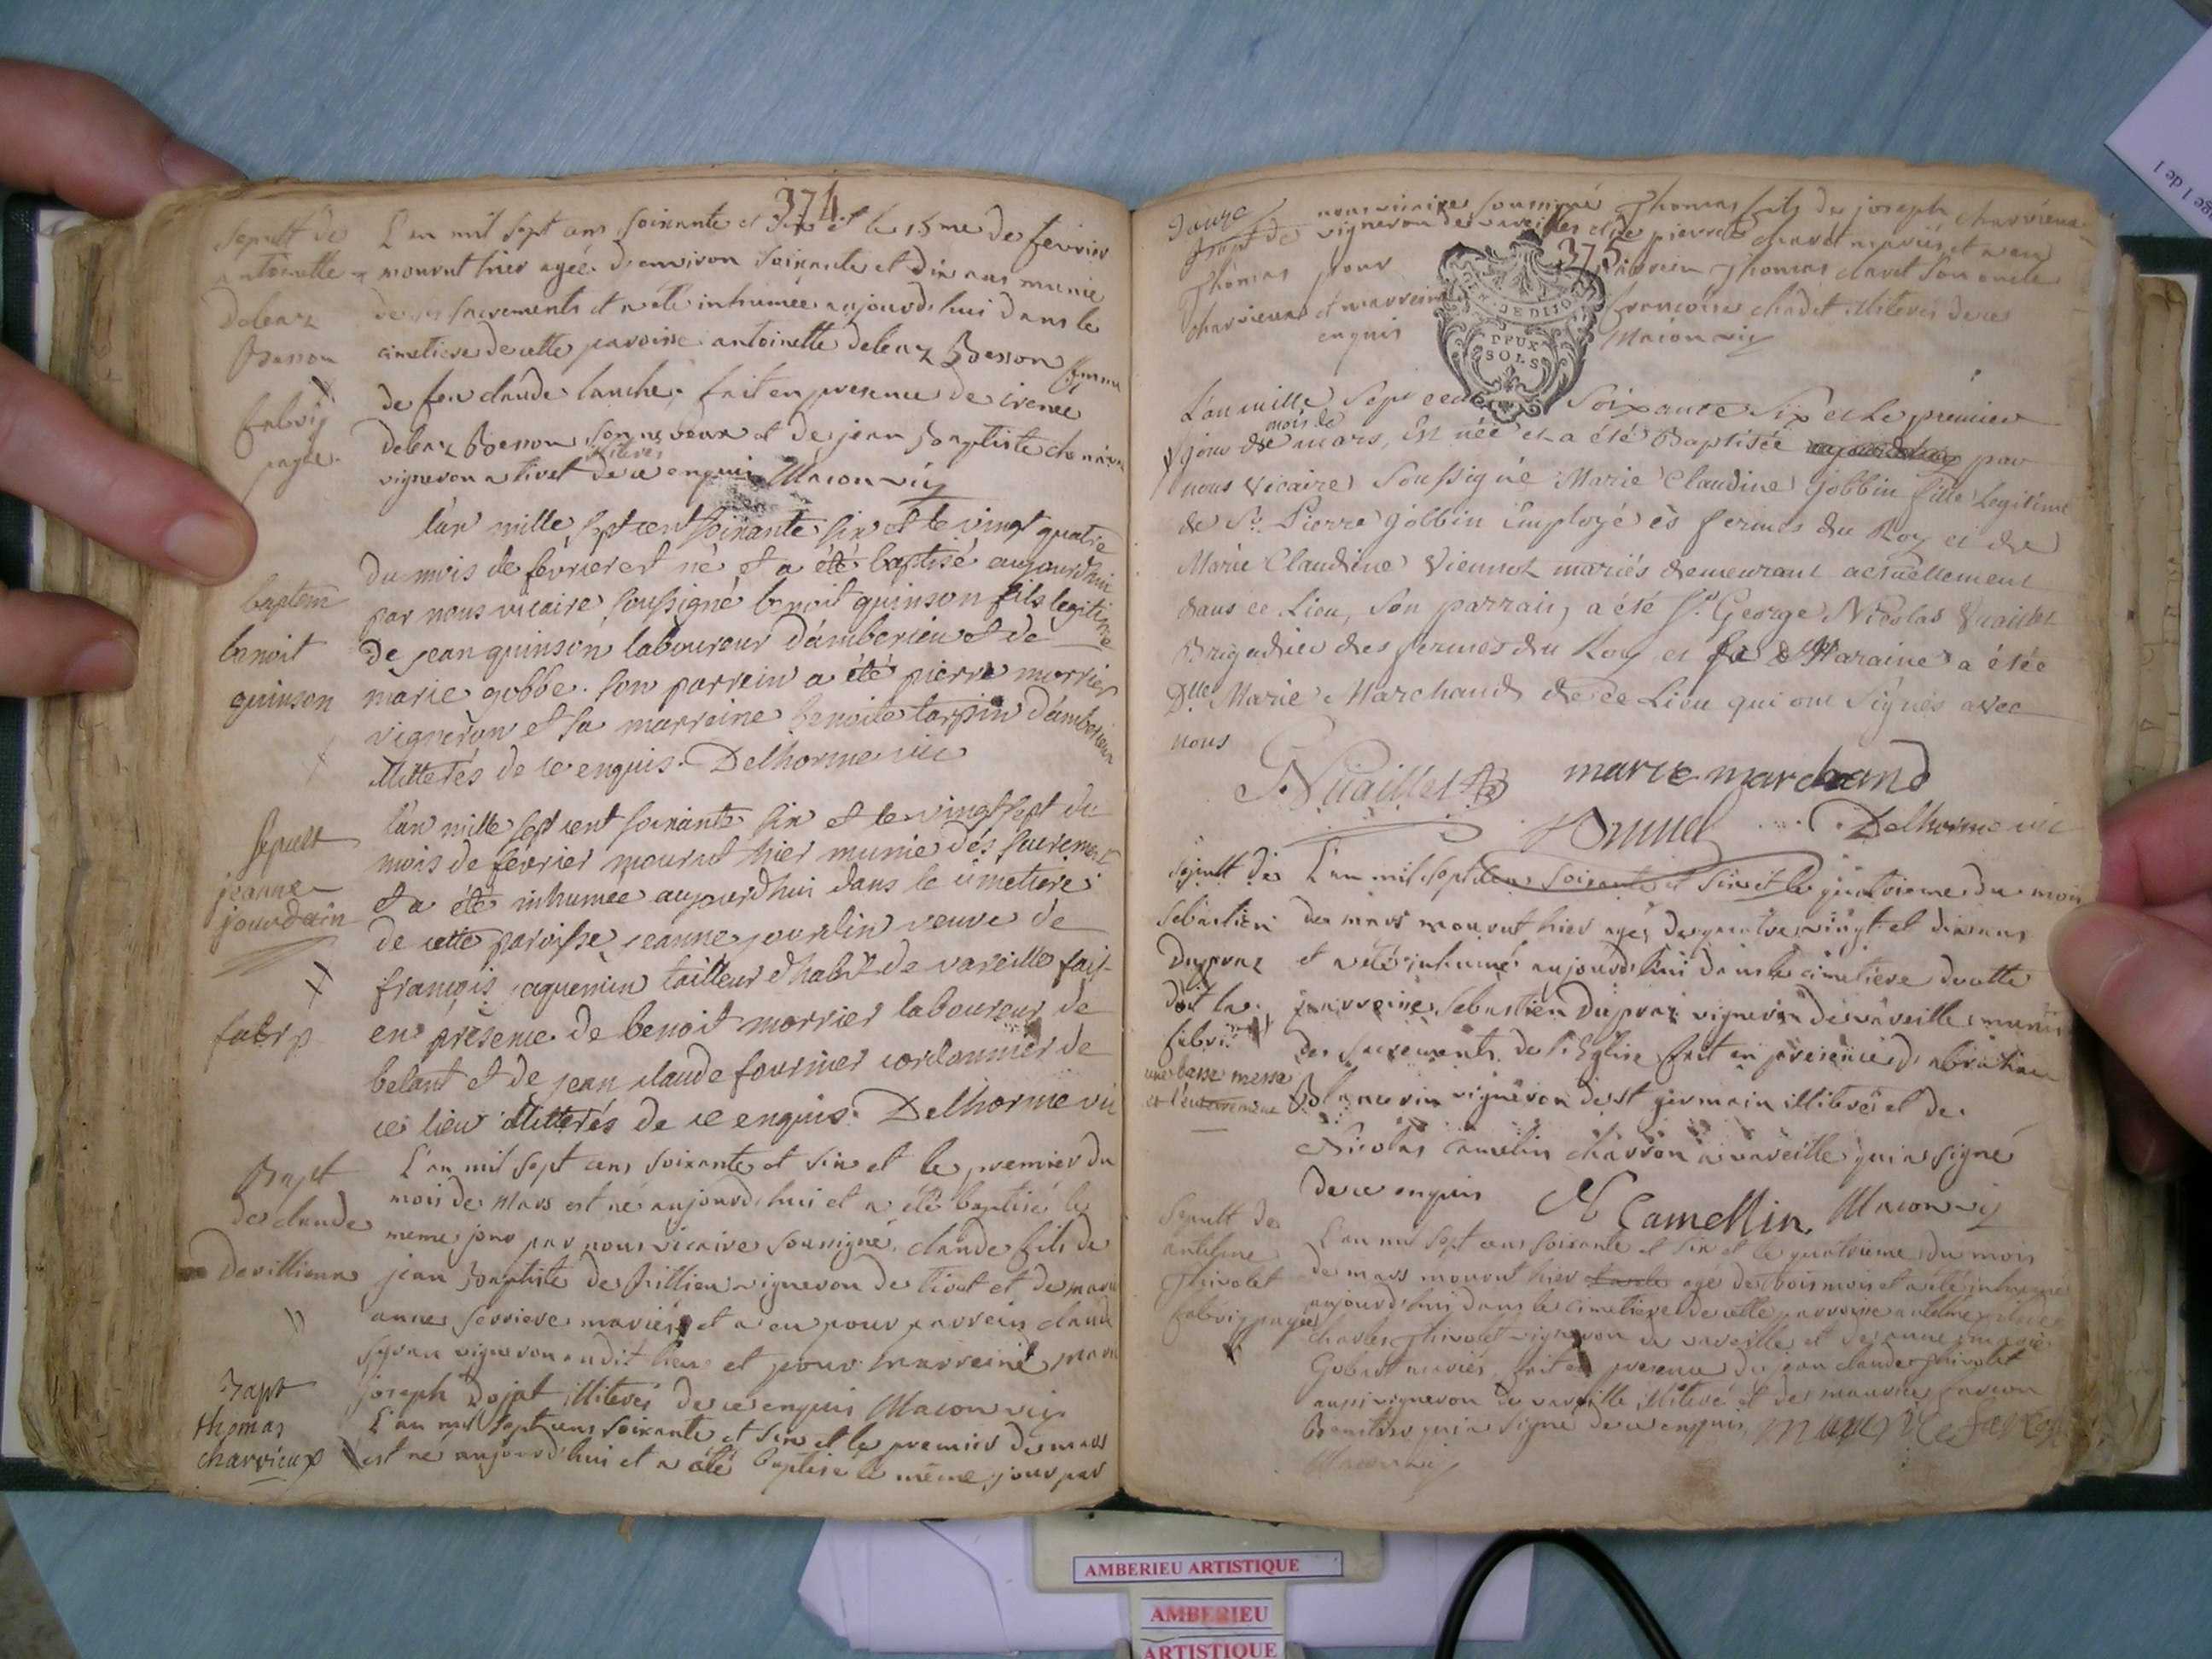 374
Sepult de
antoinette
deleaz
Besson
fabriq
payée
L'an mil sept cens soixante et six et le 15me de fevrier
mourut hier agée d'environ soixante et dix ans munie
des sacrements et a eté inhumée aujourd'hui dans le
cimetiere de cette paroisse antoinette deleaz Besson femme
de feu claude lanche. fait en presence de irenee
deleaz Besson son neveux et de jean Baptiste
vigneron a tiret illiteres de ce enquis Macon vic
baptem
benoit
guinson
l'an mille sept cent soixante six et le vingt quatre
du mois de février est né et a été baptisé aujourd'hui
par nous vicaire soussigné benoit guinson fils legitime
de jean guinson laboureur d'amberieu et de
marie gobbe. son parrein a été pierre morrier
vigneron et sa marreine benoite tarpin d'amberieu
illitterés de ce enquis. Delhorme vic
sepult
jeanne
jourdain
fabr p
l'an mille sept cent soixante six et le vingt sept du
mois de février mourut hier munie des sacrement
et a été inhumee aujourd'hui dans le cimetiere
de cette paroisse jeanne jourdin veuve de
françois jaquemin tailleur d'habit de vareille fait
en présence de benoit morrier laboureur de
belant et de jean claude fournier cordonnier de
ce lieu illitterés de ce enquis. Delhorme vic
Bapt
de claude
devillienx
L'an mil sept cens soixante et six et le premier du
mois de Mars est né aujourd'hui et a eté baptisé le
meme jour par nous vicaire soussigné. claude fils de
jean Baptiste de vigneron de tiret et de marie
anne serriere mariés et a eu pour parrein claude
vigneron audit lieu et pour marreine marie
joseph Dojat illiterés de ce enquis Macon vic
Bapt
thomas
charvieux
L'an mil sept cens soixante et six et le premier de mars
est né aujourd'hui et a eté baptisé le même jour par
375
Bapt de
Thomas
charvieux
nous vicaire soussigné Thomas fils de joseph charvieux
vigneron de vareilles et de pierrette chavet mariés et a eu
pour parrein Thomas chavet son oncle
et marreine françoise chadet illiterés de ce
enquis Macon vic
EN. DE DIJON
DEUX
SOLS
L'an mille sept cent soixante six et le premier
jour du mois de mars, Est née et a été Baptisée par
nous Vicaire Soussigné Marie Claudine Gobbin fille Legitime
de Sr. Pierre gobbin Employé ès fermes du Roy et de
Marie Claudine Viennot mariés demeurant actuellement
dans ce Lieu, Son parrain, a été Sr George Nicolas Vuaillet
Brigadier des fermes du Roy et sa Maraine a étée
Dlle Marie Marchand de ce Lieu qui ont Signés avec
nous
GNVuaillet marie marchand
Delhorme vic
Sepult de
Sebastien
Dupraz
doit la
fabri
une basse messe
L'an mil sept cens soixante et six et le quatrieme du mois
de mars mourut hier agé de quatre vingt et dix ans
et a eté inhumé aujourd'hui dans le cimetiere de cette
parroisse Sebastien Dupraz vigneron de vareille munis
des sacrements de l'Eglise fait en presence d'abraham
Blancvin vigneron de st germain illiteré et de
Nicolas Camelin charron a vareille qui a signé
de ce enquis N Camellin Macon vic
Sepult de
antelme
Thivolet
fabriq payée
L'an mil sept cens soixante et six et le quatrieme du mois
de mars mourut hier agé de trois mois et a eté inhumé
aujourd'hui dans le cimetiere de cette parroisse antelme fils de
charles Thivolet vigneron de vareille et de anne marie
Gobet mariés fait en presence de jean claude thivolet
aussi vigneron de vareille illiteré et de maurice
qui a signé de ce enquis
Macon vic
AMBERIEU ARTISTIQUE
AMBERIEU
ARTISTIQUE